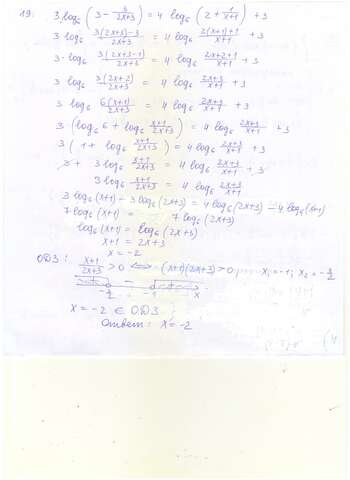 19. 3 log₆ (3 - 3/(2x+3)) = 4 log₆ (2 + 1/(x+1)) + 3
3 log₆ (3(2x+3)-3)/(2x+3) = 4 log₆ (2(x+1)+1)/(x+1) + 3
3 · log₆ 3(2x+3-1)/(2x+3) = 4 log₆ (2x+2+1)/(x+1) + 3
3 log₆ 3(2x+2)/(2x+3) = 4 log₆ (2x+3)/(x+1) + 3
3 log₆ 6(x+1)/(2x+3) = 4 log₆ (2x+3)/(x+1) + 3
3 · (log₆ 6 + log₆ (x+1)/(2x+3)) = 4 log₆ (2x+3)/(x+1) + 3
3 (1 + log₆ (x+1)/(2x+3)) = 4 log₆ (2x+3)/(x+1) + 3
3 + 3 log₆ (x+1)/(2x+3) = 4 log₆ (2x+3)/(x+1) + 3
3 log₆ (x+1)/(2x+3) = 4 log₆ (2x+3)/(x+1)
3 log₆ (x+1) - 3 log₆ (2x+3) = 4 log₆ (2x+3) - 4 log₆ (x+1)
7 log₆ (x+1) = 7 log₆ (2x+3)
log₆ (x+1) = log₆ (2x+3)
x+1 = 2x+3
x = -2
ОДЗ: (x+1)/(2x+3) > 0 ⟺ (x+1)(2x+3) > 0, x₁ = -1; x₂ = -3/2
+ - +
-3/2 -1 x
x = -2 ∈ ОДЗ
Ответ: x = -2